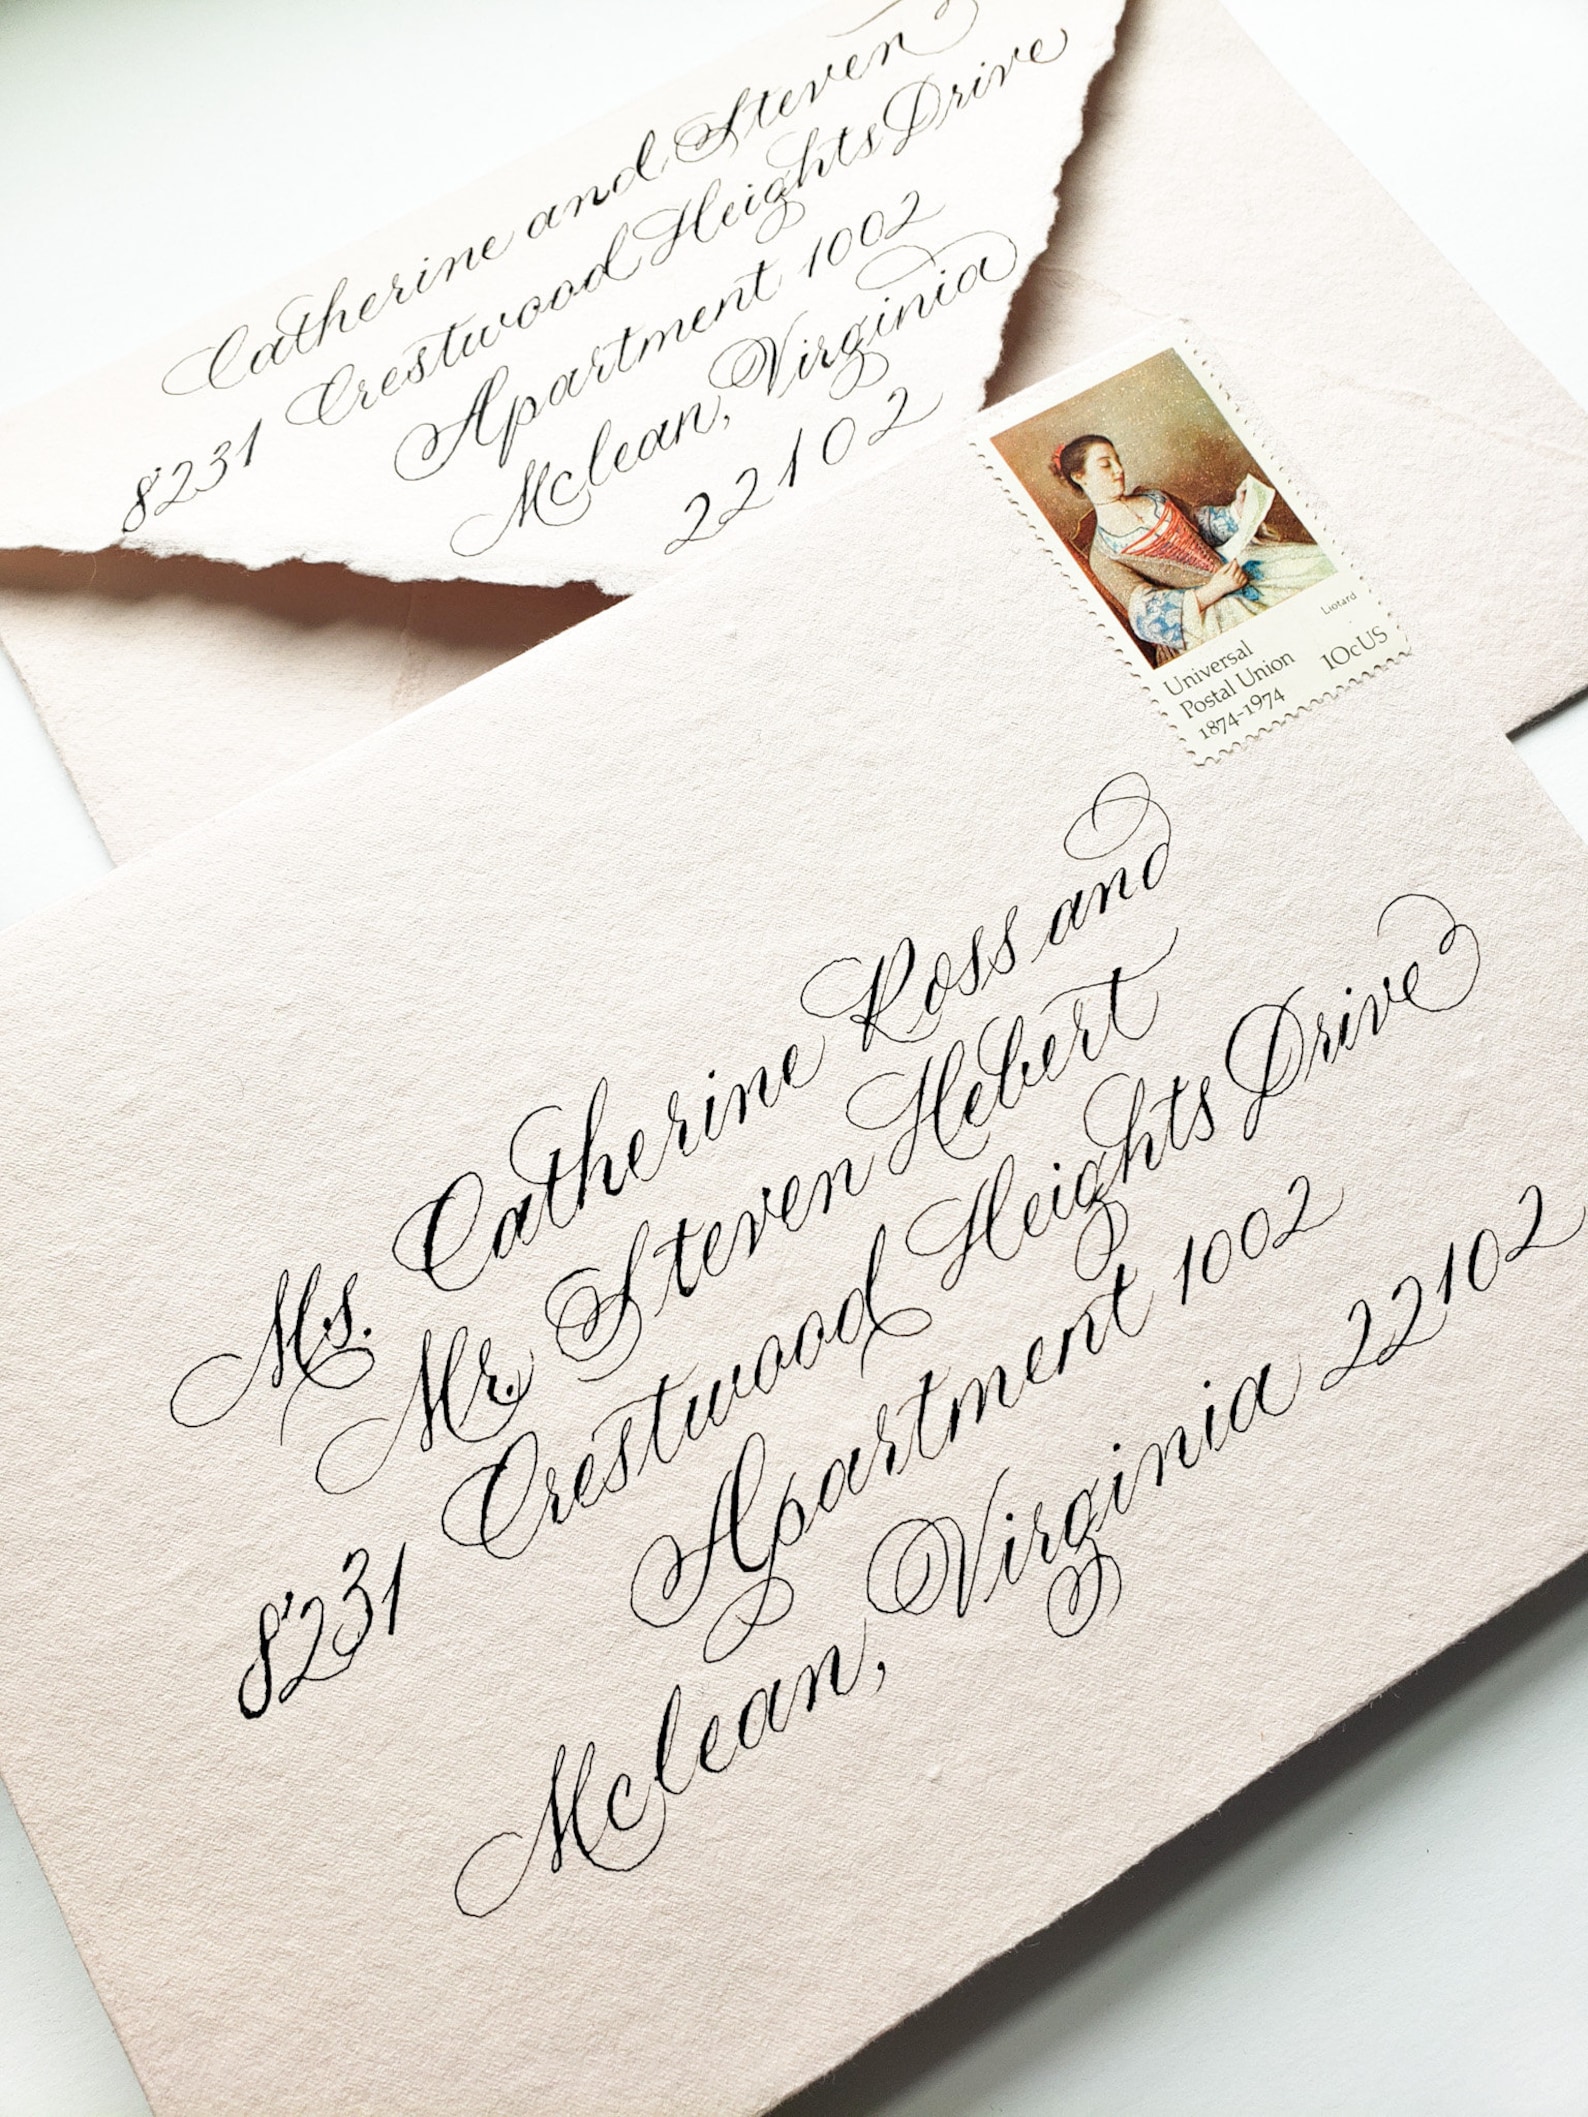 Catherine and Steven
8231 Crestwood Heights Drive
Apartment 1002
Mclean, Virginia
22102
Liotard
Universal
Postal Union 10c US
1874-1974
Ms. Catherine Ross and
Mr. Steven Hebert
8231 Crestwood Heights Drive
Apartment 1002
Mclean, Virginia 22102